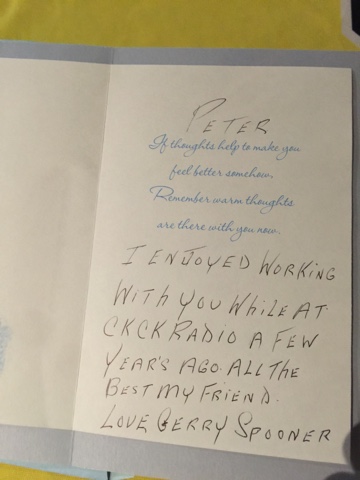 PETER
If thoughts help to make you
feel better somehow,
Remember warm thoughts
are there with you now.
I ENJOYED WORKING
WITH YOU WHILE AT
CKCK RADIO A FEW
YEAR'S AGO. ALL THE
BEST MY FRIEND.
LOVE GERRY SPOONER